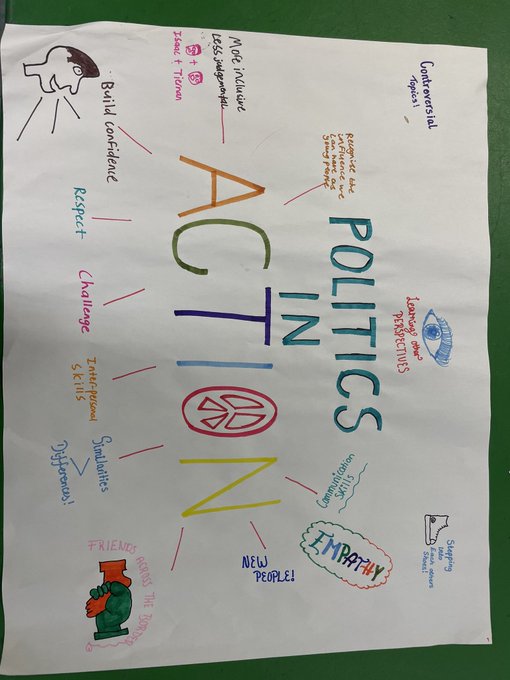 Controversial
Topics!
Learning other
PERSPECTIVES
Stepping
into
Each others
Shoes!
Recognise the
influence we
can have as
young people
POLITICS
IN
ACTION
Communication
skills
EMPATHY
NEW
PEOPLE!
More inclusive
Less judgemental
+
Isaac + Tiernan
Build confidence
Respect
Challenge
Inter-personal
skills
Similarities
Differences!
FRIENDS ACROSS THE BORDER